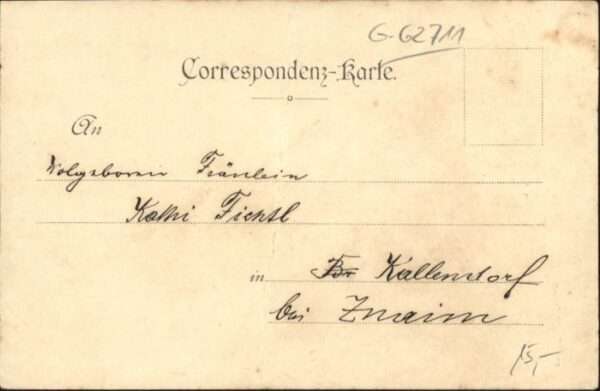 G-62711
Correspondenz-Karte.
An
Wolgeboren Fräulein
Kathi Fichtl
in Kallendorf
bei Znaim
15,-